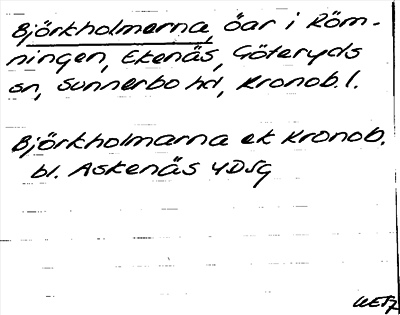 Björkholmerna, öar i Röm-
ningen, Ekenäs, Göteryds
sn, Sunnerbo hd, Kronob. l.
Björkholmarna ek Kronob.
bl. Askenäs 4DSg